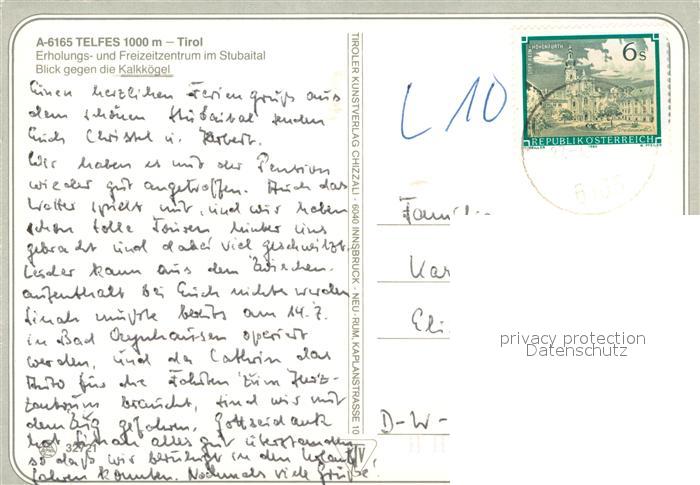 A-6165 TELFES 1000 m – Tirol
Erholungs- und Freizeitzentrum im Stubaital
Blick gegen die Kalkkögel
Einen herzlichen Feriengruß aus
dem schönen Stubaital senden
Euch Christel u. Herbert.
Wir haben es mit der Pension
wieder gut angetroffen. Auch das
Wetter spielt mit, und wir haben
schon tolle Touren hinter uns
gebracht und dabei viel geschwitzt.
Leider kann aus dem Zwischen-
aufenthalt bei Euch nichts werden
mußte bereits am 14.7.
in Bad Oeynhausen operiert
werden, und da Cathrin das
Auto für die Fahrten zum Herz-
zentrum braucht, sind wir mit
dem Zug gefahren. Gottseidank
hat alles gut überstanden
so daß wir beruhigt in den Urlaub
fahren konnten. Nochmals viele Grüße.
32721
TIROLER KUNSTVERLAG CHIZZALI · 6040 INNSBRUCK - NEU-RUM, KAPLANSTRASSE 10
L 10
STIFT REIN-HOHENFURTH
6s
REPUBLIK ÖSTERREICH
Kar
Eli
D-W-
privacy protection
Datenschutz